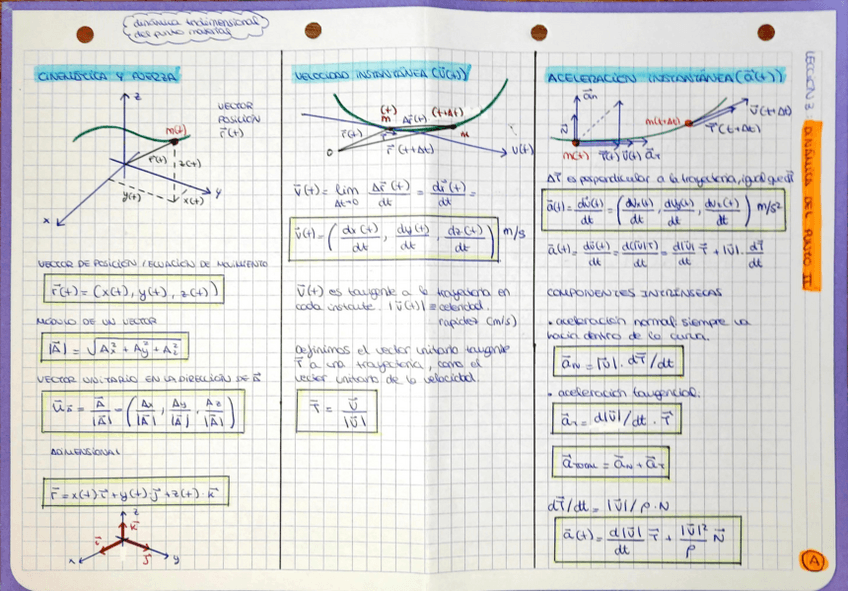 dinámica tridimensional
del punto material
LECCIÓN 3 DINÁMICA DEL PUNTO II
CINEMÁTICA Y FUERZA
z
m(t)
VECTOR
POSICIÓN
r⃗(t)
r(t)
z(t)
y(t)
x(t)
x
y
VECTOR DE POSICIÓN / ECUACIÓN DE MOVIMIENTO
r⃗(t) = (x(t), y(t), z(t))
MÓDULO DE UN VECTOR
|A⃗| = √(Ax² + Ay² + Az²)
VECTOR UNITARIO EN LA DIRECCIÓN DE A⃗
u⃗A = A⃗/|A⃗| = (Ax/|A⃗|, Ay/|A⃗|, Az/|A⃗|)
ADIMENSIONAL
r⃗ = x(t)·i⃗ + y(t)·j⃗ + z(t)·k⃗
z
k⃗
i⃗
j⃗
x
y
VELOCIDAD INSTANTÁNEA (v⃗(t))
(t)
m
Δr⃗(t)
(t+Δt)
M
r⃗(t)
O
r⃗(t+Δt)
v(t)
v⃗(t) = lim Δt→0 Δr⃗(t)/Δt = dr⃗(t)/dt =
v⃗(t) = (dx(t)/dt, dy(t)/dt, dz(t)/dt) m/s
v⃗(t) es tangente a la trayectoria en
cada instante. |v⃗(t)| ≡ celeridad.
rapidez (m/s)
Definimos el vector unitario tangente
τ⃗ a una trayectoria, como el
vector unitario de la velocidad.
τ⃗ = v⃗/|v⃗|
ACELERACIÓN INSTANTÁNEA (a⃗(t))
a⃗n
N⃗
m(t)
τ⃗(t) v⃗(t) a⃗τ
m(t+Δt)
v⃗(t+Δt)
τ⃗(t+Δt)
Δτ⃗ es perpendicular a la trayectoria, igual que dτ⃗
a⃗(t) = dv⃗(t)/dt = (dvx(t)/dt, dvy(t)/dt, dvz(t)/dt) m/s²
a⃗(t) = dv⃗(t)/dt = d(|v⃗|τ⃗)/dt = d|v⃗|/dt τ⃗ + |v⃗|· dτ⃗/dt
COMPONENTES INTRÍNSECAS
• aceleración normal siempre va
hacia dentro de la curva.
a⃗N = |v⃗| · dτ⃗/dt
• aceleración tangencial.
a⃗τ = d|v⃗|/dt · τ⃗
a⃗TOTAL = a⃗N + a⃗τ
dτ⃗/dt = |v⃗|/ρ · N
a⃗(t) = d|v⃗|/dt τ⃗ + |v⃗|²/ρ N⃗
A